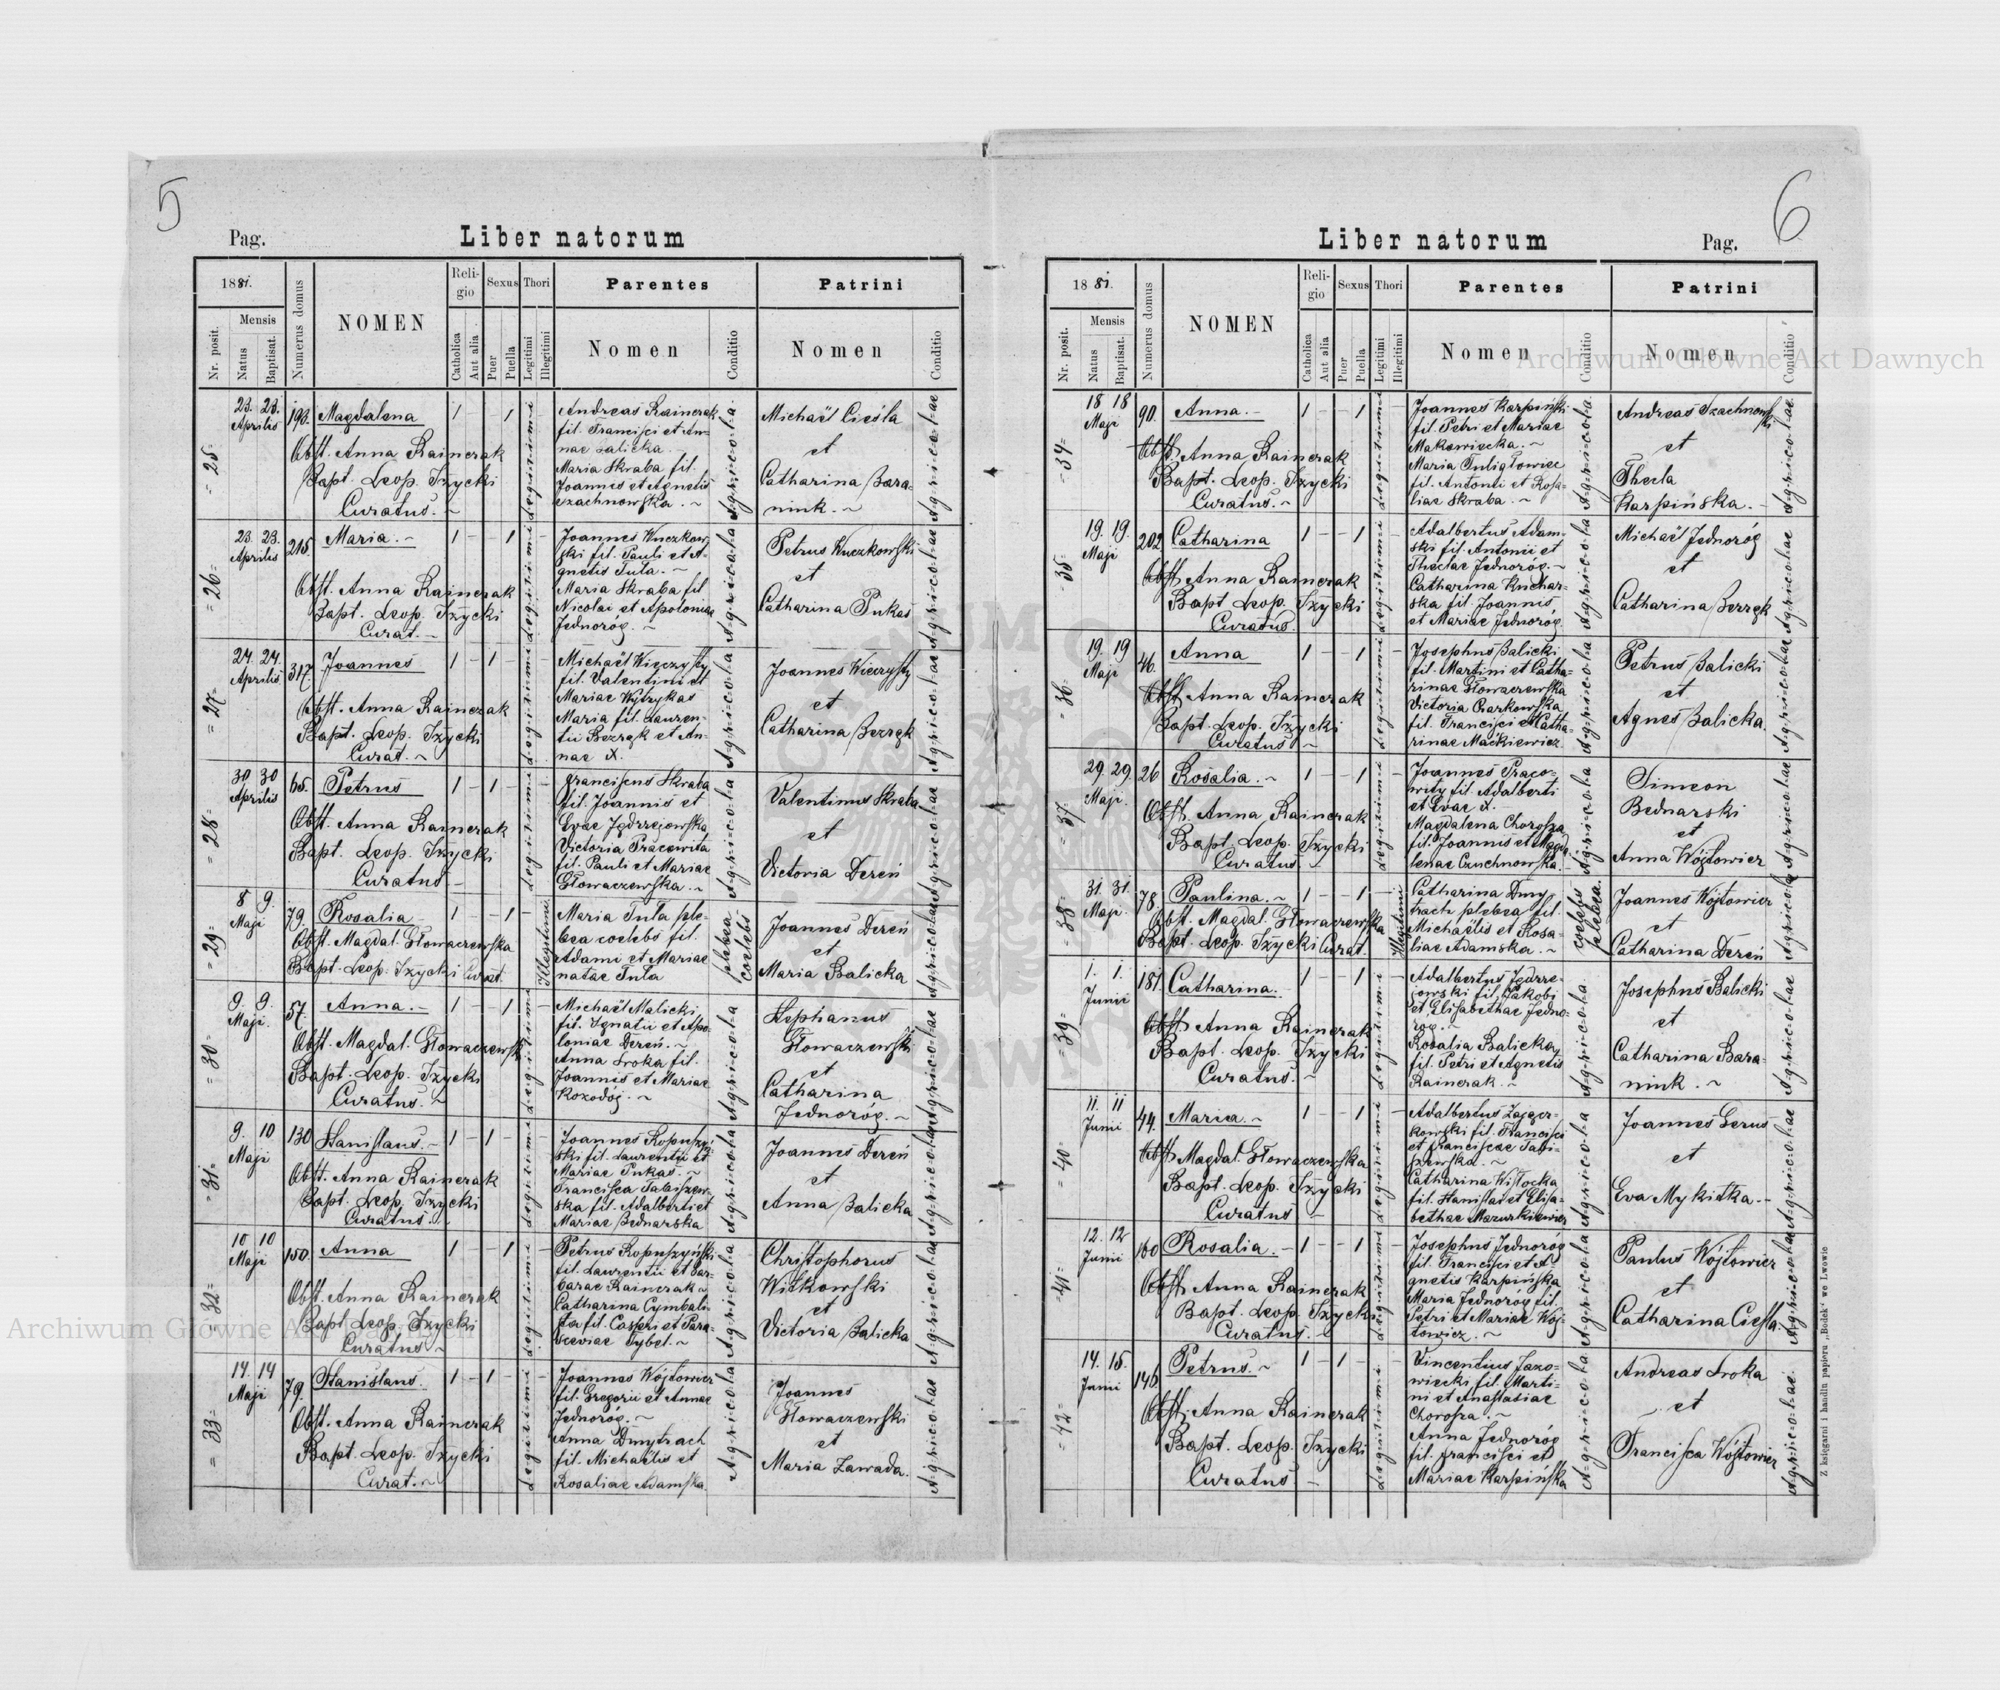 5
Pag.
Liber natorum
1881.
Mensis
Nr. posit.
Natus
Baptisat.
Numerus domus
NOMEN
Reli-
gio
Catholica
Aut alia
Sexus
Puer
Puella
Thori
Legitimi
Illegitimi
Parentes
Nomen
Conditio
Patrini
Nomen
Conditio
=25=
23. 23.
Aprilis
193.
Magdalena
1 – – 1 –
Obst. Anna Rainczak
Bapt. Leop. Iżycki
Curatus. ~
Legitimi
Andreas Rainczak
fil. Francisci et An-
nae Balicka.
Maria Skraba fil.
Joannis et Agnetis
Szachnowska. ~
Agricola
Michaël Cieśla
et
Catharina Bara-
niuk. ~
Agricolae
=26=
23. 23.
Aprilis
215.
Maria. ~
1 – – 1 –
Obst. Anna Rainczak
Bapt. Leop. Iżycki
Curat. ~
Legitimi
Joannes Wnuczkow-
ski fil. Pauli et A-
gnetis Tula. ~
Maria Skraba fil.
Nicolai et Apoloniae
Jednoróg. ~
Agricola
Petrus Wnuczkowski
et
Catharina Pukas
Agricolae
=27=
24. 24.
Aprilis
317.
Joannes
1 – 1 – –
Obst. Anna Rainczak
Bapt. Leop. Iżycki
Curat. ~
Legitimi
fil. Valentini et
Mariae Wytrykas
Maria fil. Lauren-
tii Bezręk et An-
nae X.
Agricola
Catharina Bezręk
Agricolae
=28=
30 30
Aprilis
65.
Petrus
1 – 1 – –
Obst. Anna Rainczak
Bapt. Leop. Iżycki
Curatus –
Legitimi
Franciscus Skraba
fil. Joannis et
Evae Jędrzejowska
Victoria Pracowita
fil. Pauli et Mariae
Głowaczewska. ~
Agricola
Valentinus Skraba
et
Victoria Dereń
Agricolae
=29=
8 9.
Maji
79.
Rosalia
1 – – 1 –
Obst. Magdal. Głowaczewska
Bapt. Leop. Iżycki Curat.
Illegitimi
Maria Tula ple-
bea coelebs fil.
Adami et Mariae
natae Tula
plebea
coelebs
Joannes Dereń
et
Maria Balicka
Agricolae
=30=
9. 9.
Maji.
57.
Anna. ~
1 – – 1 –
Obst. Magdal. Głowaczewsk
Bapt. Leop. Iżycki
Curatus. ~
Legitimi
Michaël Malicki
fil. Ignatii et Apo-
loniae Dereń. ~
Anna Sroka fil.
Joannis et Mariae
Kozodój. ~
Agricola
Stephanus
Głowaczewski
et
Catharina
Jednoróg. ~
Agricolae
=31=
9. 10
Maji
130
Stanislaus. ~
1 – 1 – –
Obst. Anna Rainczak
Bapt. Leop. Iżycki
Curatus. ~
Legitimi
Joannes Kopuszyń-
ski fil. Laurentii et
Mariae Pukas. ~
Francisca Tabiszew-
ska fil. Adalberti et
Mariae Bednarska
Agricola
Joannes Dereń
et
Anna Balicka
Agricolae
=32=
10 10
Maji
150.
Anna
1 – – 1 –
Obst. Anna Rainczak
Bapt. Leop. Iżycki
Curatus ~
Legitimi
Petrus Kopuszyński
fil. Laurentii et Bar-
barae Rainczak ~
Catharina Cymbali-
sta fil. Casperi et Para-
sceviae Dybel. ~
Agricola
Christophorus
Witkowski
et
Victoria Balicka
Agricolae
=33=
14. 14
Maji
79.
Stanislaus.
1 – 1 – –
Obst. Anna Rainczak
Bapt. Leop. Iżycki
Curat. ~
Legitimi
Joannes Wójtowicz
fil. Gregorii et Annae
Jednoróg. ~
Anna Dmytrach
fil. Michaëlis et
Rosaliae Adamska
Agricola
Joannes
Głowaczewski
et
Maria Zawada.
Agricolae
6
Liber natorum
Pag.
1881.
Mensis
Nr. posit.
Natus
Baptisat.
Numerus domus
NOMEN
Reli-
gio
Catholica
Aut alia
Sexus
Puer
Puella
Thori
Legitimi
Illegitimi
Parentes
Nomen
Conditio
Patrini
Nomen
Conditio
=34=
18 18
Maji
90.
Anna. –
1 – – 1 –
Obst. Anna Rainczak
Bapt. Leop. Iżycki
Curatus. ~
Legitimi
Joannes Karpiński
fil. Petri et Mariae
Makowiecka. ~
Maria Tuligłowiec
fil. Antonii et Rosa-
liae Skraba. ~
Agricola
Andreas Szachnowski
et
Thecla
Karpińska. –
Agricolae
=35=
19. 19.
Maji
202
Catharina
1 – – 1 –
Obst. Anna Rainczak
Bapt. Leop. Iżycki
Curatus.
Legitimi
Adalbertus Adam-
ski fil. Antonii et
Theclae Jednoróg. ~
Catharina Kuchar-
ska fil. Joannis
et Mariae Jednoróg
Agricola
Michaël Jednoróg
et
Catharina Bezręk
Agricolae
=36=
19. 19
Maji
46.
Anna
1 – – 1 –
Obst. Anna Rainczak
Bapt. Leop. Iżycki
Curatus ~
Legitimi
Josephus Balicki
fil. Martini et Catha-
rinae Głowaczewska
Victoria Czarkowska
fil. Francisci et Catha-
rinae Mackiewicz.
Agricola
Petrus Balicki
et
Agnes Balicka.
Agricolae
=37=
29. 29.
Maji.
26
Rosalia. ~
1 – – 1 –
Obst. Anna Rainczak
Bapt. Leop. Iżycki
Curatus
Legitimi
Joannes Praco-
wity fil. Adalberti
et Evae X. –
Magdalena Chorosza
fil. Joannis et Magda-
lenae Czuchnowska. –
Agricola
Simeon
Bednarski
et
Anna Wójtowicz
Agricolae
=38=
31. 31.
Maji.
78.
Paulina. ~
1 – – 1 –
Obst. Magdal. Głowaczewska
Bapt. Leop. Iżycki Curat.
Illegitimi
Catharina Dmy-
trach plebea fil.
Michaëlis et Rosa-
liae Adamska. ~
coelebs
plebea.
Joannes Wójtowicz
et
Catharina Dereń
Agricolae
=39=
1. 1.
Junii
181.
Catharina.
1 – – 1 –
Obst. Anna Rainczak
Bapt. Leop. Iżycki
Curatus. ~
Legitimi
Adalbertus Jędrze-
jowski fil. Jakobi
et Elisabethae Jedno-
róg. ~
Rosalia Balicka,
fil. Petri et Agnetis
Rainczak. ~
Agricola
Josephus Balicki
et
Catharina Bara-
niuk. ~
Agricolae
=40=
11. 11
Junii
44.
Maria. ~
1 – – 1 –
Obst. Magdal. Głowaczewska
Bapt. Leop. Iżycki
Curatus –
Legitimi
Adalbertus Zajger-
kowski fil. Francisci
et Franciscae Tabi-
szewska. ~
Catharina Wisłocka
fil. Stanislai et Elisa-
bethae Mazurkiewicz
Agricola
Joannes Gerus
et
Eva Mykitka. –
Agricolae
=41=
12. 12
Junii
160
Rosalia. –
1 – – 1 –
Obst. Anna Rainczak
Bapt. Leop. Iżycki
Curatus. –
Legitimi
Josephus Jednoróg
fil. Francisci et A-
gnetis Karpińska
Maria Jednoróg fil.
Petri et Mariae Wój-
towicz. ~
Agricola
Paulus Wójtowicz
et
Catharina Cieśla.
Agricolae
=42=
14. 15.
Junii
146
Petrus. ~
1 – 1 – –
Obst. Anna Rainczak
Bapt. Leop. Iżycki
Curatus –
Legitimi
Vincentius Jazo-
wiecki fil. Marti-
ni et Anastasiae
Chorosza. ~
Anna Jednoróg
fil. Francisci et
Mariae Karpińska
Agricola
Andreas Sroka
et
Francisca Wójtowicz
Agricolae.
Z księgarni i handlu papieru „Bodek“ we Lwowie
Archiwum Główne Akt Dawnych
Archiwum Główne Akt Dawnych